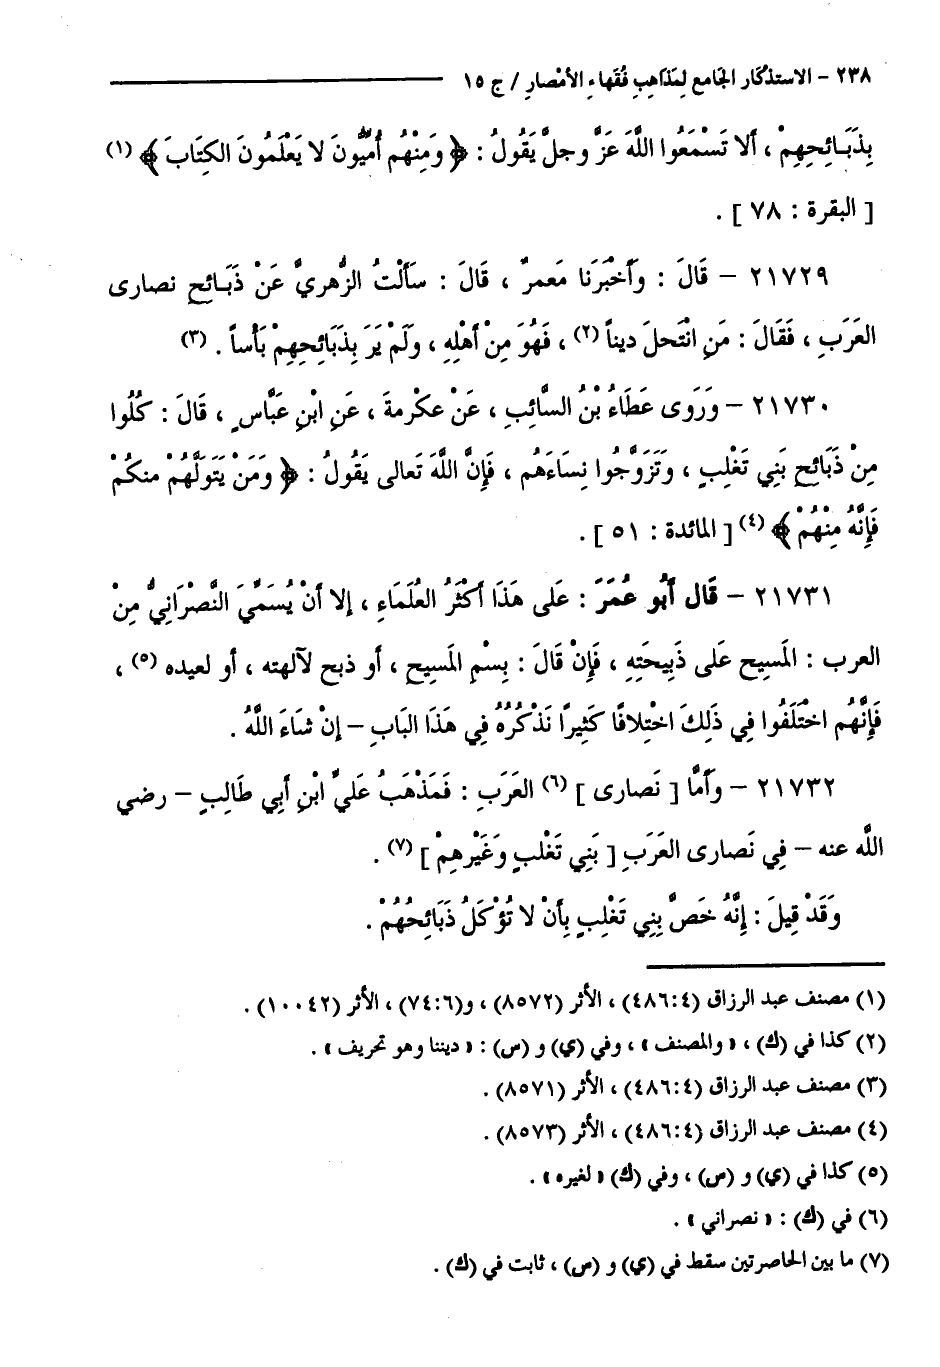 ٢٣٨ - الاستذكار الجامع لمذاهب فُقَهاء الأمْصار / ج ١٥
بِذَبَائِحِهِمْ ، أَلا تَسْمَعُوا اللَّهَ عَزَّ وجلَّ يَقُولُ : ﴿ وَمِنْهُم أُمِّيُّونَ لا يَعْلَمُونَ الكِتَابَ ﴾ (١)
[ البقرة : ٧٨ ] .
٢١٧٢٩ - قَالَ : وَأَخْبَرَنَا مَعمرٌ ، قَالَ : سَأَلْتُ الزُّهريَّ عَنْ ذَبَائِحِ نصارى
العَرَبِ ، فَقَالَ : مَنِ انْتَحلَ ديناً (٢) ، فَهُوَ مِنْ أَهْلِهِ ، وَلَمْ يَرَ بِذَبَائِحِهِمْ بَأْساً . (٣)
٢١٧٣٠ - وَرَوَى عَطَاءُ بْنُ السَّائِبِ ، عَنْ عكْرمةَ ، عَنِ ابْنِ عَبَّاسٍ ، قَالَ : كُلُوا
مِنْ ذَبَائِحِ بَنِي تَغْلِبٍ ، وَتَزَوَّجُوا نِسَاءَهُم ، فَإِنَّ اللَّهَ تَعالى يَقُولُ : ﴿ وَمَنْ يَتَولَّهُمْ منكُمْ
فَإِنَّهُ مِنْهُمْ ﴾ (٤) [ المائدة : ٥١ ] .
٢١٧٣١ - قَال أَبُو عُمَرَ : عَلى هَذَا أَكْثَرُ العُلَمَاءِ ، إلا أَنْ يُسَمِّيَ النَّصْرَانِيُّ مِنَ
العرب : المَسِيح عَلى ذَبِيحَتِهِ ، فَإِنْ قَالَ : بِسْمِ المَسِيحِ ، أو ذبح لآلهته ، أو لعيده (٥) ،
فَإِنَّهُم اخْتَلَفُوا فِي ذَلِكَ اخْتِلافًا كَثِيرًا نَذْكُرُهُ فِي هَذَا البَابِ - إِنْ شَاءَ اللَّهُ .
٢١٧٣٢ - وَأَمَّا [ نَصارى ] (٦) العَرَبِ : فَمَذْهَبُ عَلِيِّ ابْنِ أَبِي طَالِبٍ - رضي
اللَّه عنه - فِي نَصارى العَرَبِ [ بَنِي تَغْلبٍ وَغَيْرِهِمْ ] (٧) .
وَقَدْ قِيلَ : إِنَّهُ خَصَّ بِنِي تَغْلِبٍ بِأَنْ لا تُؤْكَلُ ذَبَائِحُهُمْ .
(١) مصنف عبد الرزاق (٤٨٦:٤) ، الأثر (٨٥٧٢) ، و(٧٤:٦) ، الأثر (١٠٠٤٢) .
(٢) كذا في (ك) ، « والمصنف » ، وفي (ي) و (س) : « ديننا وهو تحريف » .
(٣) مصنف عبد الرزاق (٤٨٦:٤) ، الأثر (٨٥٧١) .
(٤) مصنف عبد الرزاق (٤٨٦:٤) ، الأثر (٨٥٧٣) .
(٥) كذا في (ي) و (س) ، وفي (ك) « لغيره » .
(٦) في (ك) : « نصراني » .
(٧) ما بين الحاصرتين سقط في (ي) و (س) ، ثابت في (ك) .